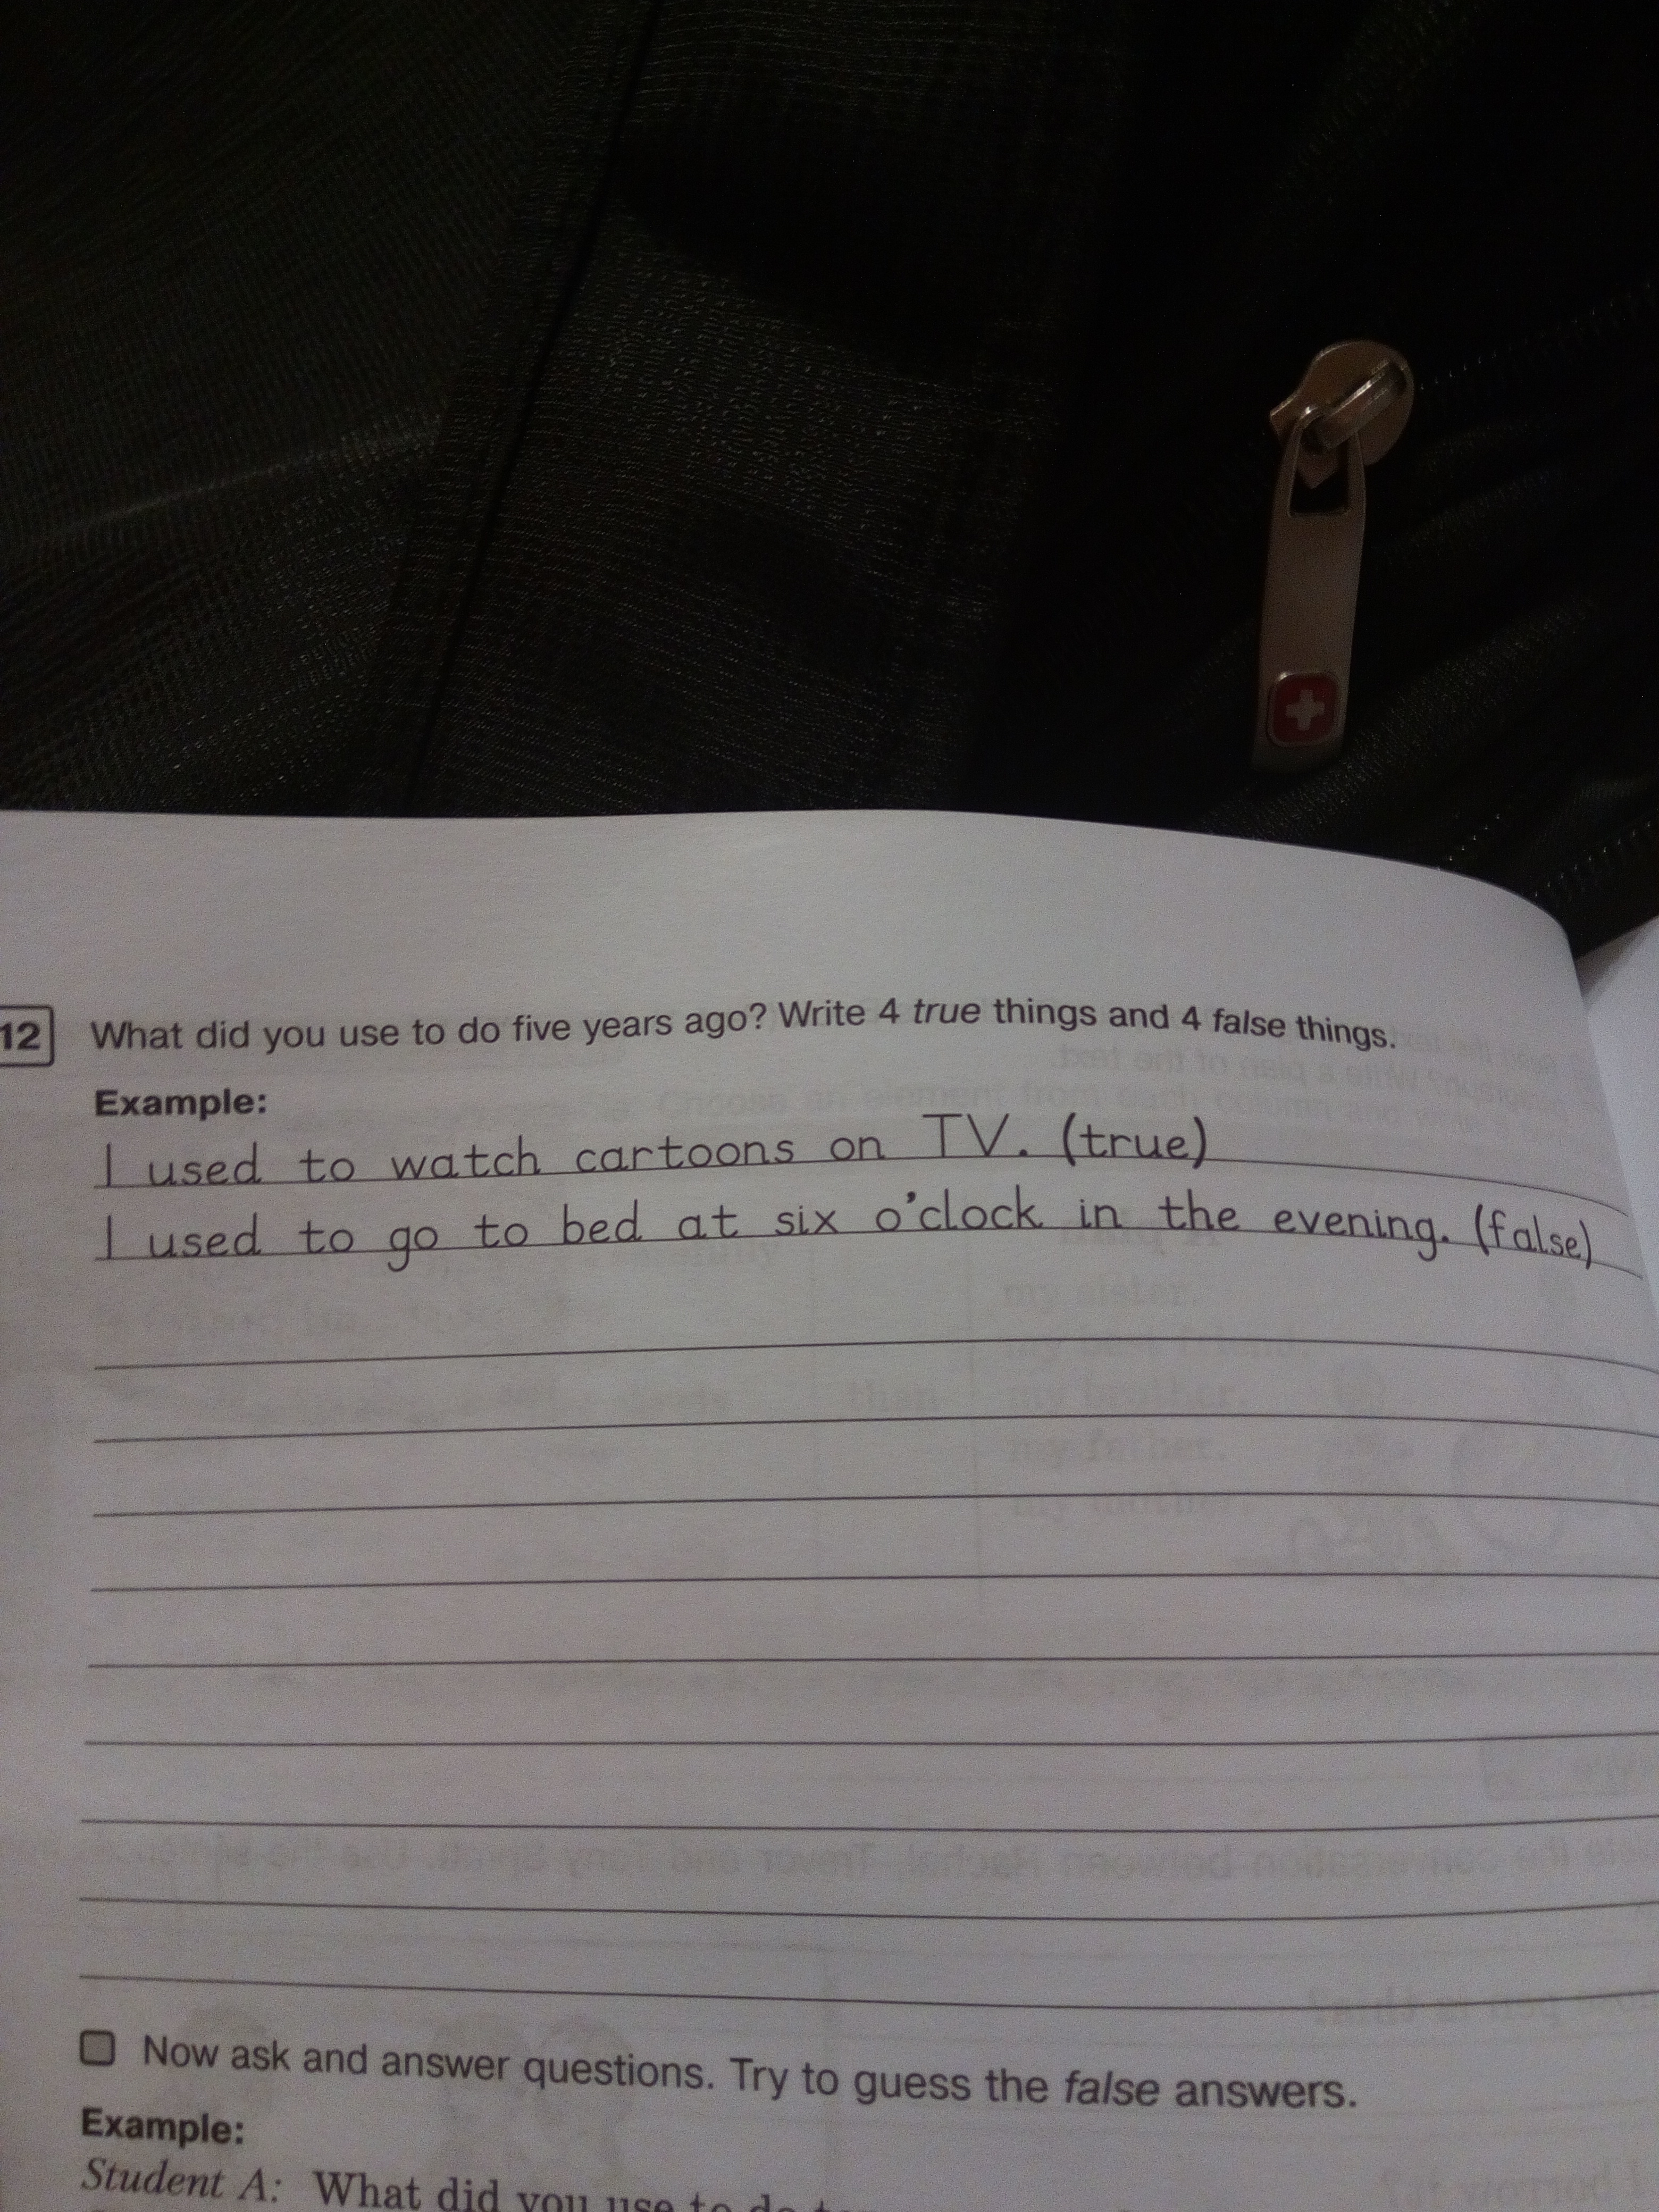 12 What did you use to do five years ago? Write 4 true things and 4 false things.
Example:
I used to watch cartoons on TV. (true)
I used to go to bed at six o'clock in the evening. (false)
Now ask and answer questions. Try to guess the false answers.
Example:
Student A: What did you use to do